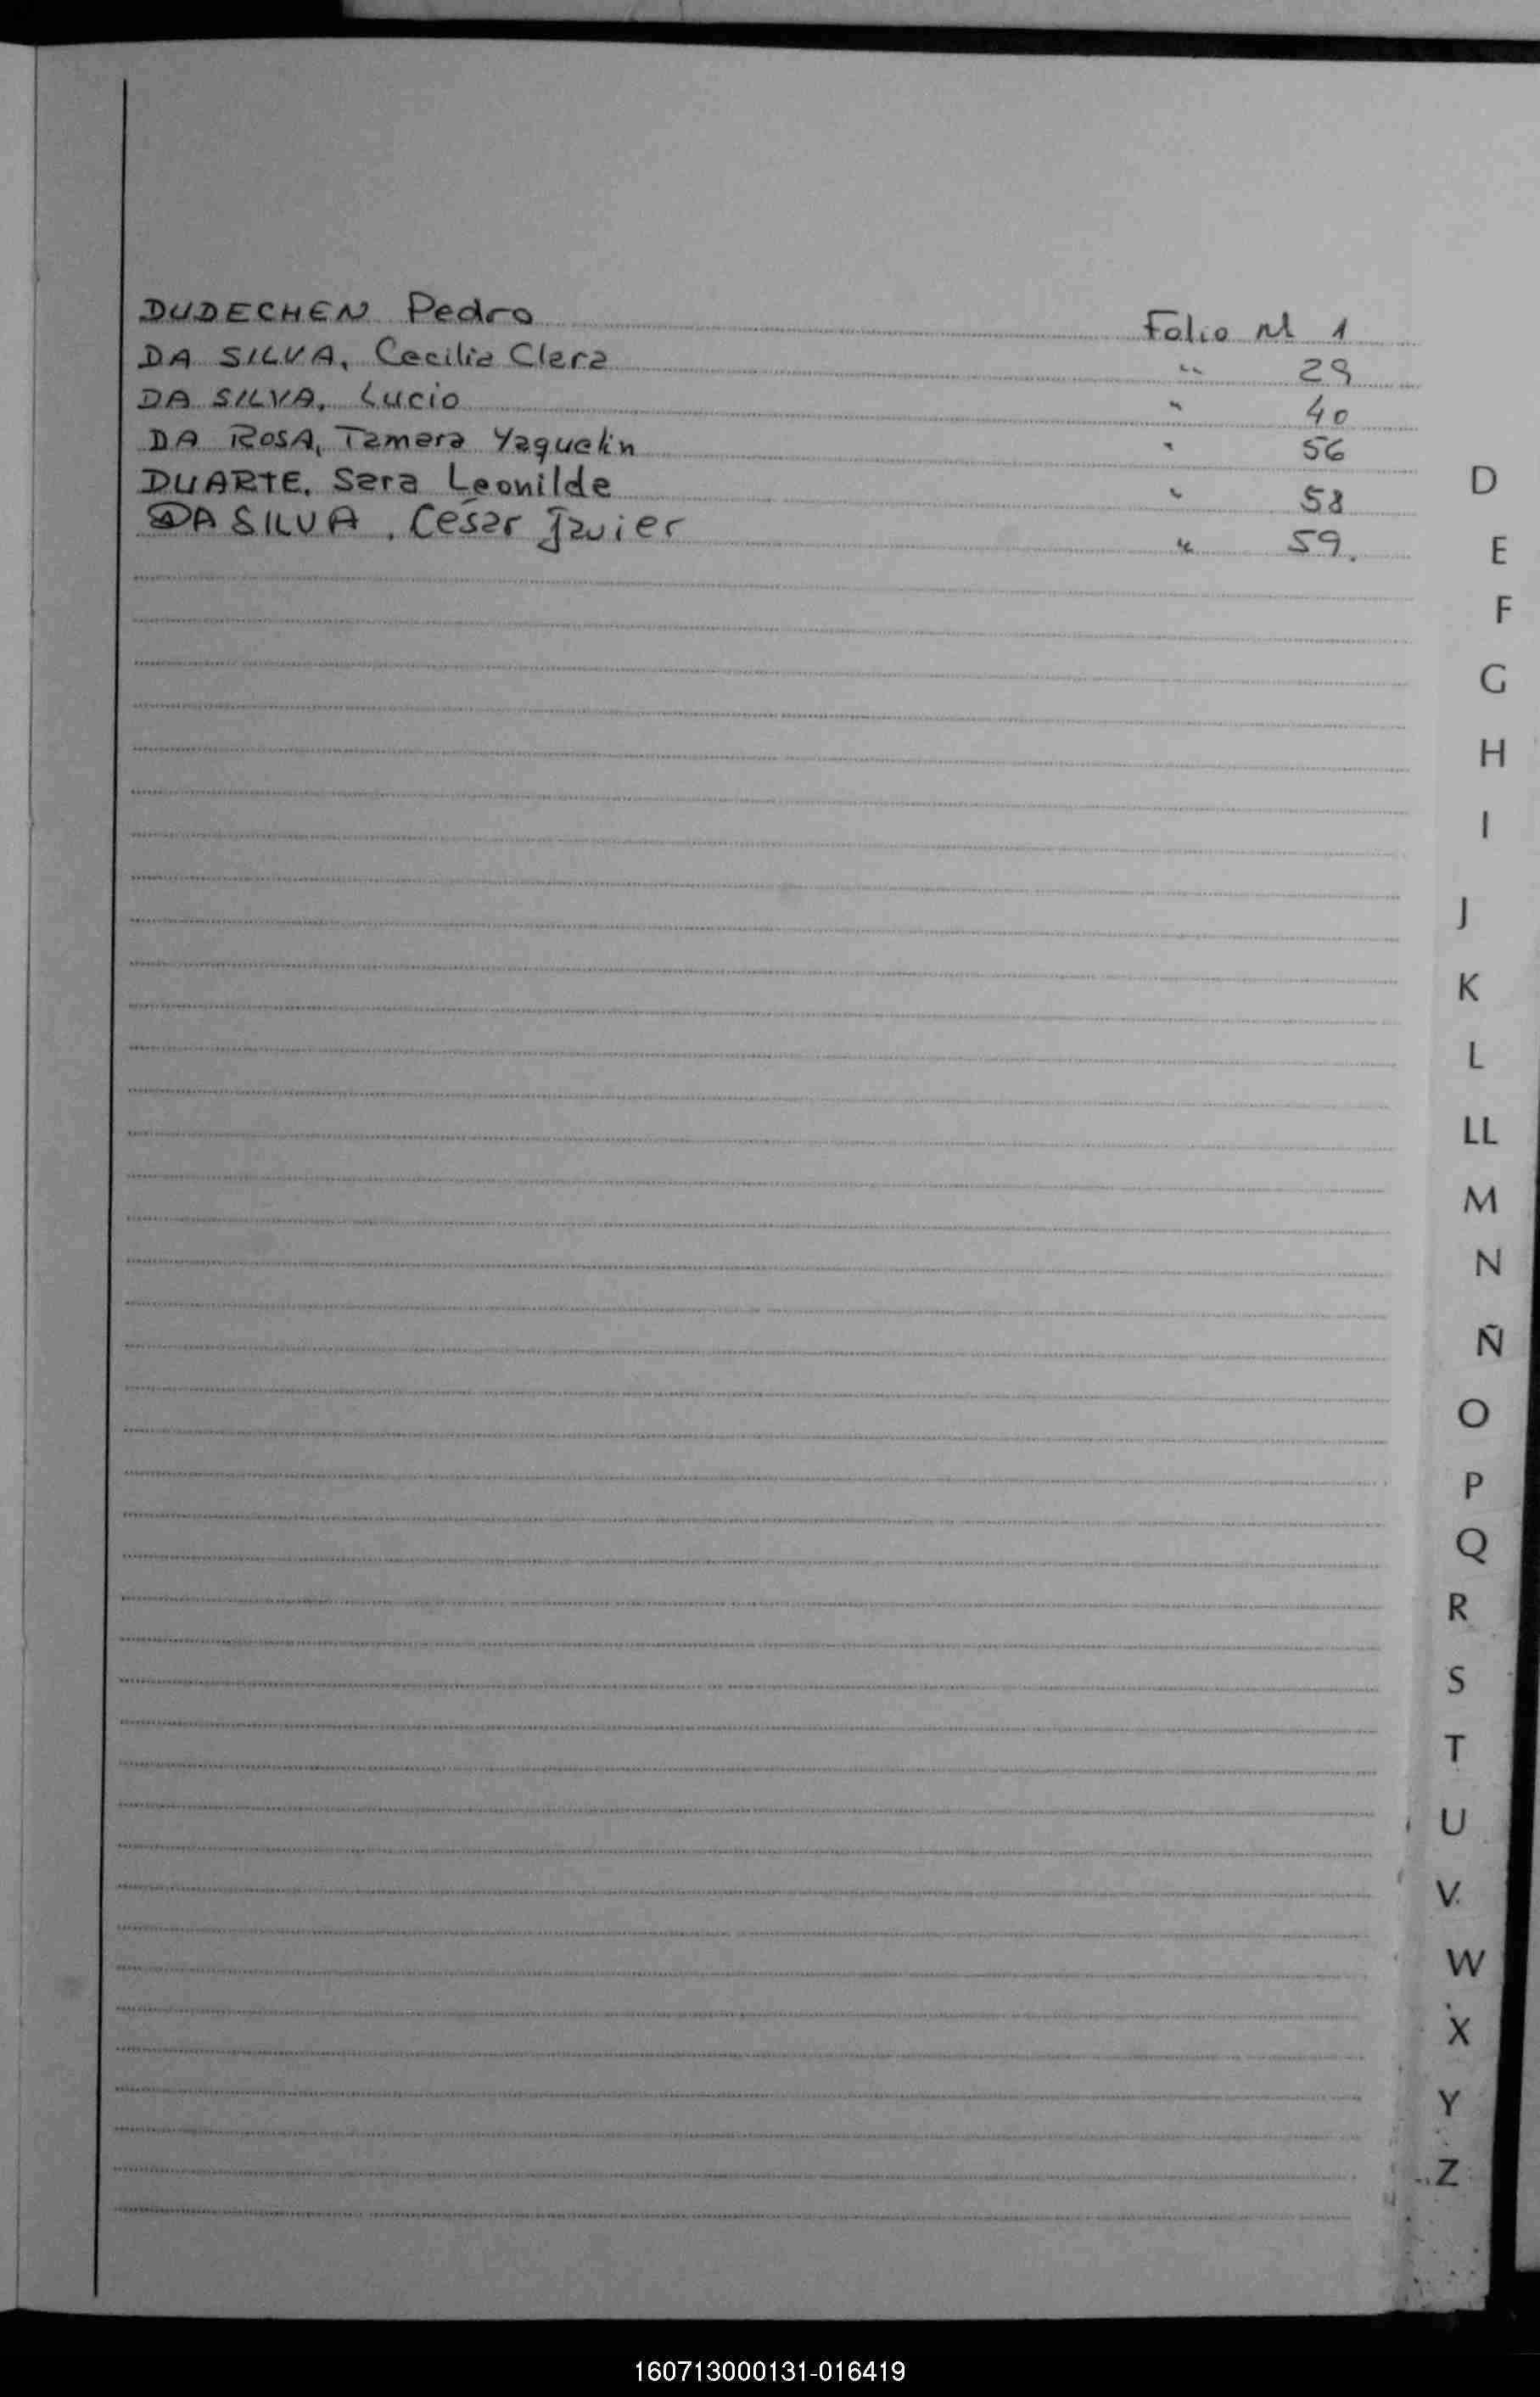 DUDECHEN Pedro Folio Nº 1
DA SILVA, Cecilia Clara " 29
DA SILVA, Lucio " 40
DA ROSA, Tamara Yaquelin " 56
DUARTE, Sara Leonilde " 58
DA SILVA, César Javier " 59.
D
E
F
G
H
I
J
K
L
LL
M
N
Ñ
O
P
Q
R
S
T
U
V
W
X
Y
Z
160713000131-016419